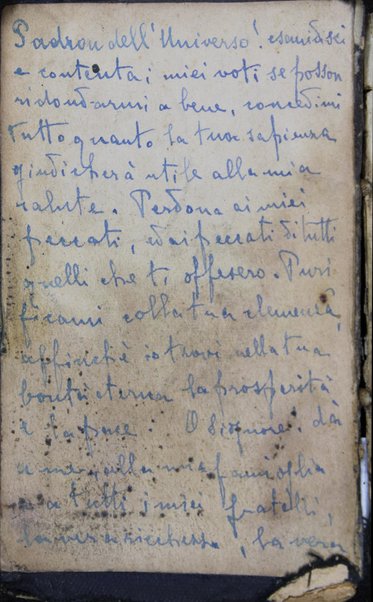 Padron dell'Universo! esaudisci
e contenta i miei voti se posson
ridondarmi a bene, concedimi
tutto quanto la tua sapienza
giudicherà utile alla mia
salute. Perdona ai miei
peccati, ed ai peccati di tutti
quelli che ti offesero. Puri
ficami colla tua clemenza,
affinchè io trovi nella tua
bontà eterna la prosperità
e la pace. O Signore! dà
a me, alla mia famiglia
e a tutti i miei fratelli,
la vera ricchezza, la vera